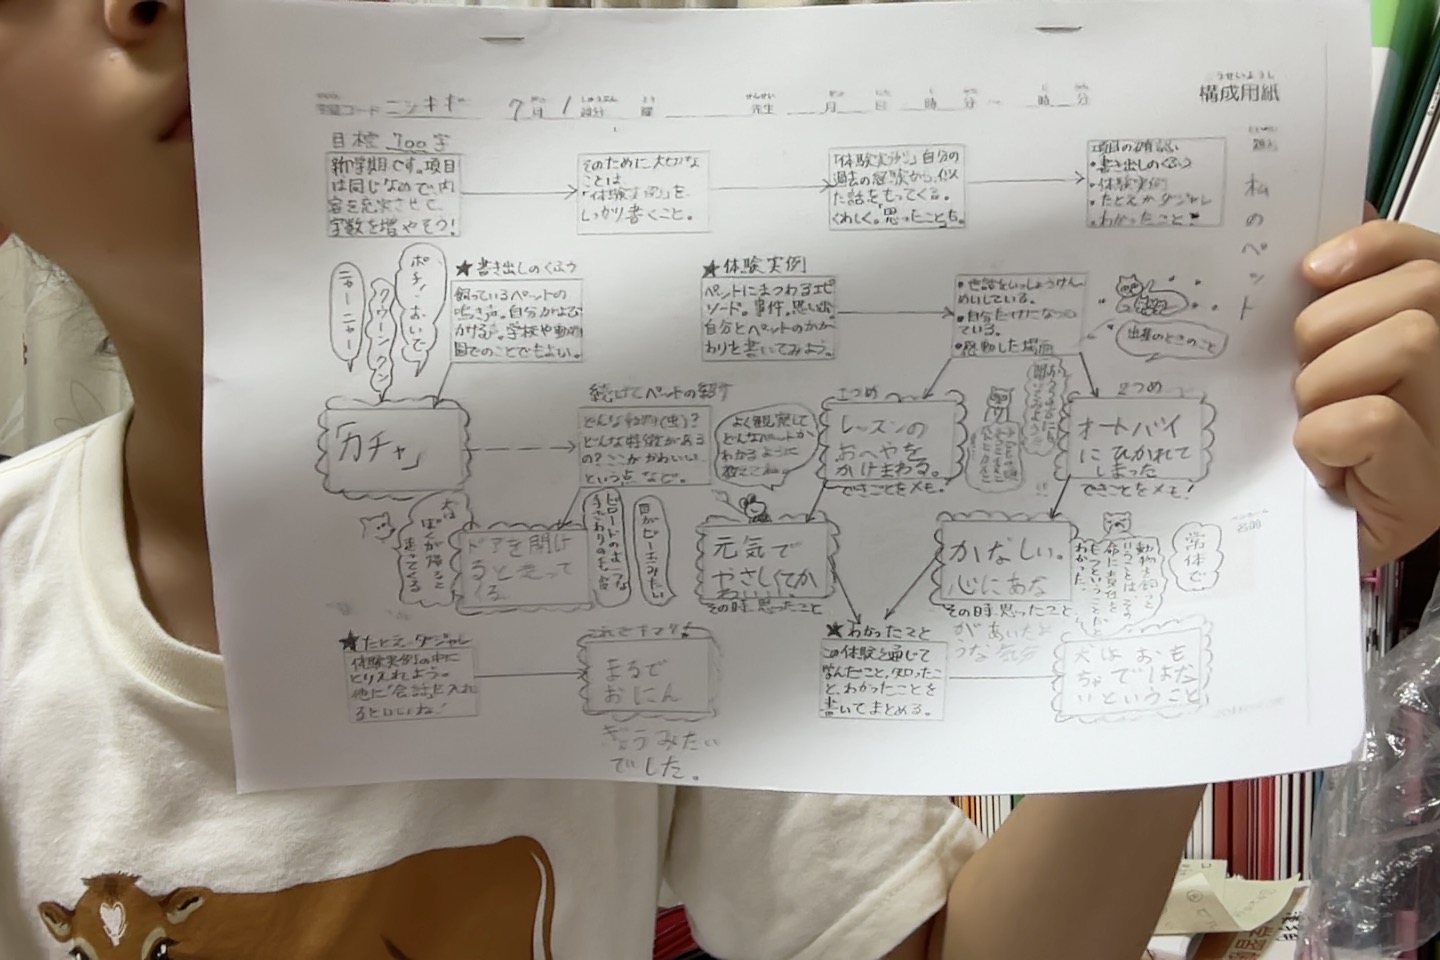 こうせいようし
構成用紙
私のペット
7月1週分 曜 先生 月 日 時 分 ～ 時 分
目標 700字
新学期です。項目
は同じなので内
容を充実させて、
字数を増やそう!
そのために大切な
ことは
「体験実例」を、
しっかり書くこと。
「体験実例」自分の
過去の経験から、似
た話をもってくる。
くわしく。思ったことも。
項目の確認
・書き出しのくふう
・体験実例
・たとえかダジャレ
・わかったこと!
★書き出しのくふう
飼っているペットの
鳴き声。自分がよび
かける声。学校や動物
園でのことでもよい。
ポチ!おいで!
クウーンクン
ニャーニャー
★体験実例
ペットにまつわるエピ
ソード。事件。思い出。
自分とペットのかか
わりを書いてみよう。
・世話をいっしょうけん
めいしている。
・自分だけになつい
ている。
・感動した場面
出産のときのこと
「カチャ」
続けてペットの紹介
どんな動物(虫)?
どんな特徴がある
の?ここがかわいい
という点など。
よく観察して
どんなペットか
わかるように
教えてね。
1つめ
レッスンの
おへやを
かけまわる。
できごとをメモ!
2つめ
オートバイ
にひかれて
しまった
できごとをメモ!
犬は
ぼくが帰ると
走ってくる
ドアを開け
ると走って
くる
ビロードのような
手ざわりの毛
目がビー玉みたい
元気で
やさしくてか
わいい。
その時、思ったこと
かなしい。
心にあな
その時、思ったこと
があいたよ
うな気分
動物を飼うと
いうことは、その
命に責任を
もつということだと
わかった。
常体で
★たとえ・ダジャレ
体験実例の中に
とり入れよう。
他に「会話」も入れ
るといいね!
これできまり!
まるで
おにん
ぎょうみたい
でした。
★わかったこと
この体験を通じて
学んだこと、知ったこ
と、わかったことを
書いてまとめる。
犬はおも
ちゃではな
いということ